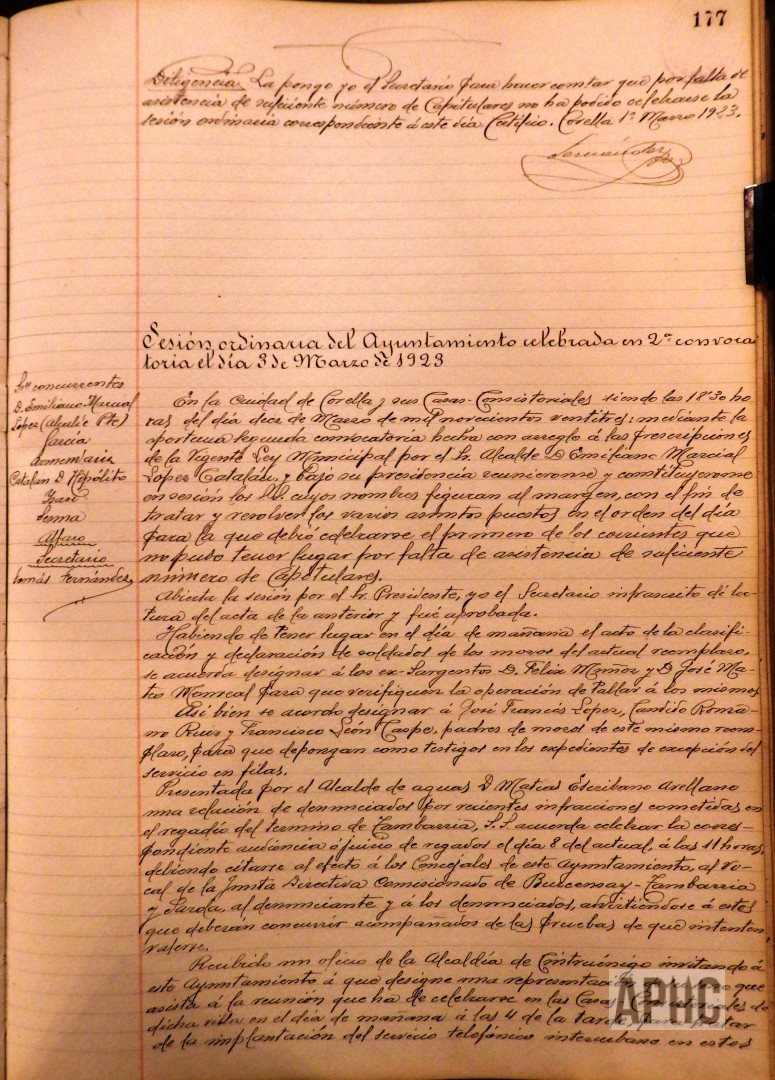 177
Diligencia. La pongo yo el Secretario para hacer constar que por falta de
asistencia de suficiente número de Capitulares no ha podido celebrarse la
sesión ordinaria correspondiente á este día Certifico. Corella 1º Marzo 1923.
Fernández
Sesión ordinaria del Ayuntamiento celebrada en 2ª convoca
toria el día 3 de Marzo de 1923
Sres concurrentes
D. Emiliano Marcial
Lopez (Alcalde Pte)
García
Armendariz
Catalan D. Hipólito
Sanz
Sesma
Alfaro
Secretario
Tomás Fernández
En la Ciudad de Corella y sus Casas-Consistoriales siendo las 18'30 ho
ras del día de Marzo de mil novecientos ventitres: mediante la
oportuna segunda convocatoria hecha con arreglo á las prescripciones
de la Vigente Ley Municipal por el Sr. Alcalde D. Emiliano Marcial
Lopez Catalán, y bajo su presidencia reunieronse y constituyeronse
en sesión los SS. cuyos nombres figuran al margen, con el fin de
tratar y resolver los varios asuntos puestos en el orden del día
para la que debió celebrarse el primero de los corrientes que
no pudo tener lugar por falta de asistencia de suficiente
número de Capitulares.
Abierta la sesión por el Sr. Presidente, yo el Secretario infrascrito di lec-
tura del acta de la anterior y fué aprobada.
Habiendo de tener lugar en el día de mañana el acto de la clasifi-
cación y declaración de soldados de los mozos del actual reemplazo,
se acuerda designar á los ex-Sargentos D. Felix Muñoz y D. José Ma-
teo Monreal para que verifiquen la operación de tallar á los mismos
Asi bien se acordo designar á José Francés Lopez, Candido Roma-
no Ruiz y Francisco León Caspe, padres de mozos de este mismo reem-
plazo, para que depongan como testigos en los expedientes de excepción del
servicio en filas.
Presentada por el Alcalde de aguas D. Matias Escribano Arellano
una relación de denunciados por recientes infracciones cometidas en
el regadío del termino de Cambarria, S.S. acuerda celebrar la corres-
pondiente audiencia ó juicio de regados el día 8 del actual, á las 11 horas,
debiendo citarse al efecto á los Concejales de este Ayuntamiento, al Vo-
cal de la Junta Directiva Comisionado de Cambarria
y Sarda, al denunciante y á los denunciados, advirtiendose á estos
que deberán concurrir acompañados de las pruebas de que intenten
valerse.
Recibido un oficio de la Alcaldía de Cintruénigo invitando á
este Ayuntamiento á que designe una representación que
asista á la reunión que ha de celebrarse en las Casas Consistoriales de
dicha villa en el día de mañana á las 4 de la tarde, para tratar
de la implantación del servicio telefónico interurbano en estos
APHC